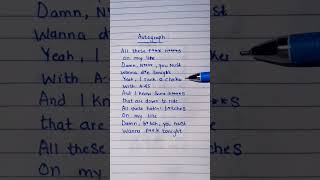 Autograph
All these f**k n****s
on my line
Damn, N****, you must
Wanna d*e tonight
Yeah, I rock a choker
With A-45
And I know some n****s
that are down to ride
All
hatin' b*tches
On my line
Damn, b*tch, you must
Wanna f**k tonight
Damn, N
Wanna d*e
Yeah, I
With A-45
And I k
that are
All these
On my
****s